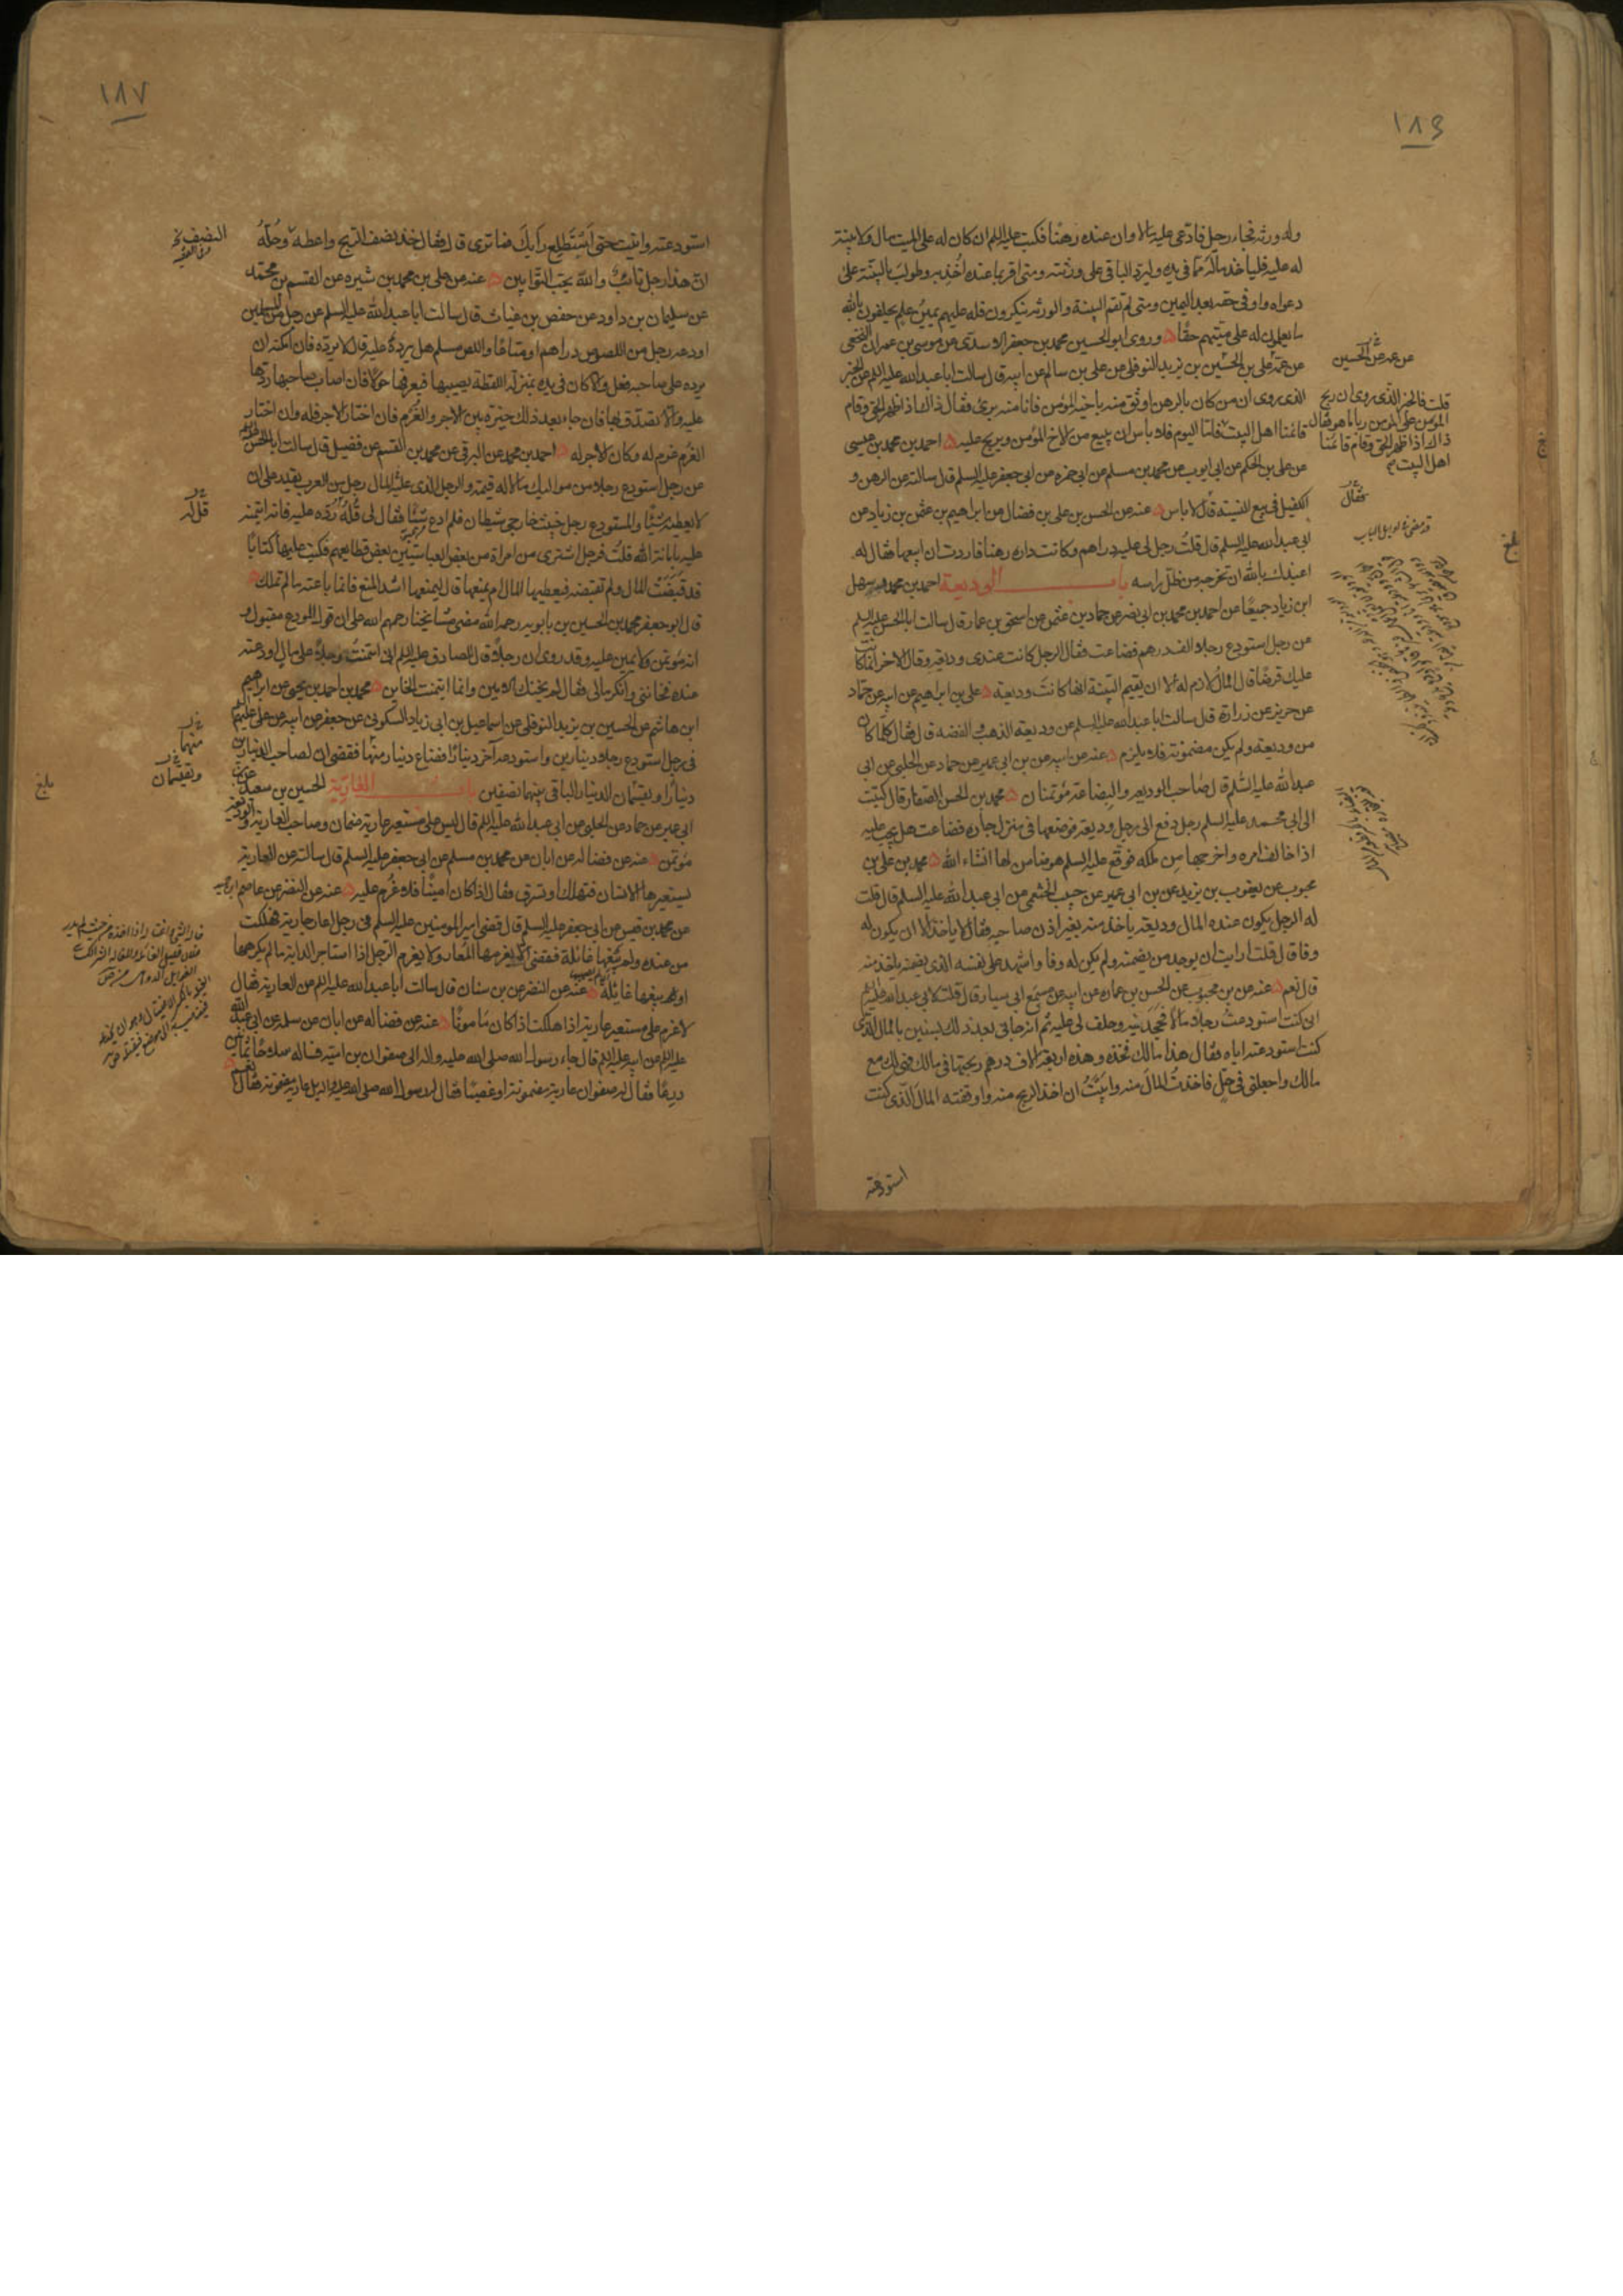 ١٨٦
وله ورثة فجاء رجل فادعى عليه مالا وان عنده رهنا فكتب عليه السلم ان كان له على الميت مال ولا بينة
له عليه فلياخذ ماله مما في يده وليرد الباقي على ورثته ومتى اقر بما عنده اخذ به وطولب بالبينة على
دعواه واوفى حقه بعد اليمين ومتى لم تقم البينة والورثة ينكرون فله عليهم يمين علم يحلفون بالله
ما يعلمون له على ميتهم حقا وروى ابو الحسين محمد بن جعفر الاسدى عن موسى بن عمران النخعى
عن عمه على بن الحسين بن يزيد النوفلى عن على بن سالم عن ابيه قال سالت ابا عبد الله عليه السلم عن الخبر
الذى روى ان من كان بالرهن اوثق منه باخيه المؤمن فانا منه برئ فقال ذاك اذا ظهر الحق وقام
قائمنا اهل البيت فاما اليوم فلا باس ان يبيع من الاخ المؤمن ويربح عليه احمد بن محمد بن عيسى
عن على بن الحكم عن ابى ايوب عن محمد بن مسلم عن ابى حمزه عن ابى جعفر عليه السلم قال سالته عن الرهن و
الكفيل فى بيع النسيئة قال لا باس عنه عن الحسن بن على بن فضال عن ابراهيم بن عثمن بن زياد عن
ابى عبد الله عليه السلم قال قلت رجل لى عليه دراهم وكانت داره رهنا فاردت ان ابيعها فقال له
اعيذك بالله ان تخرجه من ظل راسه باب الوديعة احمد بن محمد وسهل
ابن زياد جميعا عن احمد بن محمد بن ابى نصر عن حماد بن عثمن عن اسحق بن عمار قال سالت ابا الحسن عليه السلم
عن رجل استودع رجلا الف درهم فضاعت فقال الرجل كانت عندى وديعة وقال الاخر انما كانت
عليك قرضا قال المال لازم له الا ان يقيم البينة انها كانت وديعة على بن ابراهيم عن ابيه عن حماد
عن حريز عن زرارة قال سالت ابا عبد الله عليه السلم عن وديعة الذهب والفضة قال فقال كلما كان
من وديعة ولم يكن مضمونة فلا يلزم عنه عن ابيه عن بن ابى عمير عن حماد عن الحلبى عن ابى
عبد الله عليه السلم قال صاحب الوديعه والبضاعة مؤتمنان محمد بن الحسن الصفار قال كتبت
الى ابى محمد عليه السلم رجل دفع الى رجل وديعة فوضعها فى منزل جاره فضاعت هل يجب عليه
اذا خالف امره واخرجها من ملكه فوقع عليه السلم هو ضامن لها انشاء الله محمد بن على بن
محبوب عن يعقوب بن يزيد عن بن ابى عمير عن حبيب الخثعمى عن ابى عبد الله عليه السلم قال قلت
له الرجل يكون عنده المال وديعة ياخذ منه بغير اذن صاحبه فقال لا ياخذ الا ان يكون له
وفا قال قلت ارايت ان وجد من يضمنه ولم يكن له وفا واشهد على نفسه الذى يضمنه ياخذ منه
قال نعم عنه عن بن محبوب عن الحسن بن عماره عن ابيه عن مسمع ابى سيار قال قلت لابى عبد الله عليه السلم
انى كنت استودعت رجلا مالا فجحدنيه وحلف لى عليه ثم انه جانى بعد ذلك بسنين بالمال الذى
كنت استودعته اياه فقال هذا مالك فخذه وهذه اربعة الاف درهم ربحتها فى مالك فهى لك مع
مالك واجعلنى فى حل فاخذت المال منه وابيت ان اخذ الربح منه واوقفته المال الذى كنت
استودعته
عن عمه عن الحسين
قلت فالخبر الذى روى ان ربح
المؤمن على المؤمن ربا ما هو فقال
ذاك اذا ظهر الحق وقام قائمنا
اهل البيت
فقال
بلغ
١٨٧
استودعته وابيت حتى استطلع رايك فما ترى قال فقال خذ نصف الربح واعطه وحله
ان هذا رجل تائب والله يحب التوابين عنه عن على بن محمد بن شيره عن القسم بن محمد
عن سليمان بن داود عن حفص بن غياث قال سالت ابا عبد الله عليه السلم عن رجل من المسلمين
اودعه رجل من اللصوص دراهم او متاعا واللص مسلم هل يرده عليه قال لا يرده فان امكنه ان
يرده على صاحبه فعل والا كان فى يده بمنزلة اللقطة يصيبها فيعرفها حولا فان اصاب صاحبها ردها
عليه والا تصدق بها فان جاء بعد ذلك خيره بين الاجر والغرم فان اختار الاجر فله وان اختار
الغرم غرم له وكان الاجر له احمد بن محمد عن البرقى عن محمد بن القسم عن فضيل قال سالت ابا الحسن عليه السلم
عن رجل استودع رجلا من مواليك مالا له قيمة والرجل الذى عليه المال رجل من العرب يقدر على ان
لا يعطيه شيئا والمستودع رجل خبيث خارجى شيطان فلم ادع شيئا فقال لى قل له رده عليه فانه ائتمنه
عليه بامانة الله قلت فرجل اشترى من امراة من بعض العباسيين بعض قطايعهم فكتب عليها كتابا
قد قبضت المال ولم تقبضه فيعطيها المال ام يمنعها قال ليمنعها اشد المنع فانما باعته ما لم تملك
قال ابو جعفر محمد بن الحسين بن بابويه رحمه الله مضى مشايخنا رحمهم الله على ان قول المودع مقبول و
انه مؤتمن ولا يمين عليه وقد روى ان رجلا قال للصادق عليه السلم انى ائتمنت رجلا على مال اودعته
عنده فخاننى وانكر مالى فقال لم يخنك الامين وانما ائتمنت الخاين محمد بن احمد بن يحيى عن ابراهيم
ابن هاشم عن الحسين بن يزيد النوفلى عن اسماعيل بن ابى زياد السكونى عن جعفر عن ابيه عن على عليهم السلم
فى رجل استودع رجلا دينارين واستودعه آخر دينارا فضاع دينار منها فقضى ان لصاحب الدينارين
دينارا ويقتسمان الدينار الباقى بينهما نصفين باب العارية الحسين بن سعيد عن بن
ابى عمير عن حماد عن الحلبى عن ابى عبد الله عليه السلم قال ليس على مستعير عارية ضمان وصاحب العارية والوديعة
مؤتمن عنه عن فضاله عن ابان عن محمد بن مسلم عن ابى جعفر عليه السلم قال سالته عن العارية
يستعيرها الانسان فتهلك او تسرق فقال اذا كان امينا فلا غرم عليه عنه عن النضر عن عاصم بن حميد
عن محمد بن قيس عن ابى جعفر عليه السلم قال قضى امير المومنين عليه السلم فى رجل اعار جارية فهلكت
من عنده ولم يبغها غائلة فقضى الا يغرمها المعار ولا يغرم الرجل اذا استاجر الدابة ما لم يكرهها
او لم يبغها غائلة عنه عن النضر عن بن سنان قال سالت ابا عبد الله عليه السلم عن العارية فقال
لا غرم على مستعير عارية اذا هلكت اذا كان مامونا عنه عن فضاله عن ابان عن سلمه عن ابى عبد الله
عليه السلم عن ابيه عليه السلم قال جاء رسول الله صلى الله عليه واله الى صفوان بن امية فساله سلاحا ثمانين
درعا فقال له صفوان عارية مضمونة او غصبا فقال له رسول الله صلى الله عليه واله بل عارية مضمونة فقال نعم
النصف
قل له
منهما
ويقتسمان
بلغ